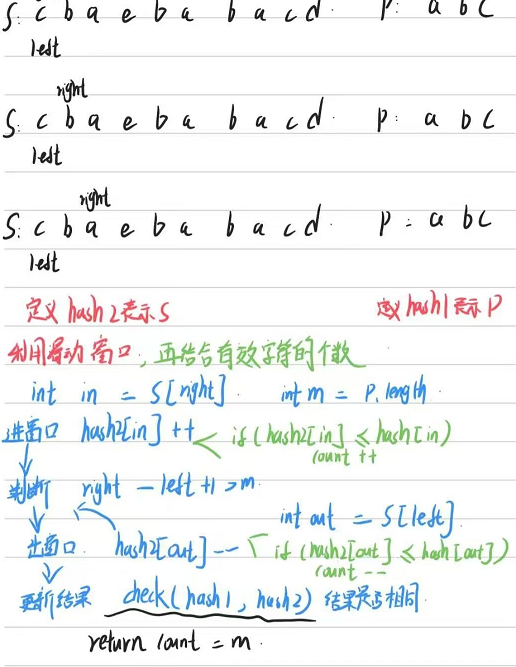 S: c b a e b a b a c d. P: a b c
left
right
S: c b a e b a b a c d. P: a b c
left
right
S: c b a e b a b a c d. P: a b c
left
定义 hash2表示S 定义 hash1表示P
利用滑动窗口, 再结合有效字符的个数
int in = S[right]. int m = P.length.
进窗口 hash2[in]++ if(hash2[in] ≤ hash[in)
count ++
判断 right - left +1 > m.
int out = S[left].
出窗口. hash2[out]-- if(hash2[out] ≤ hash[out])
count --
更新结果 check(hash1, hash2) 结果是否相同.
return count = m.